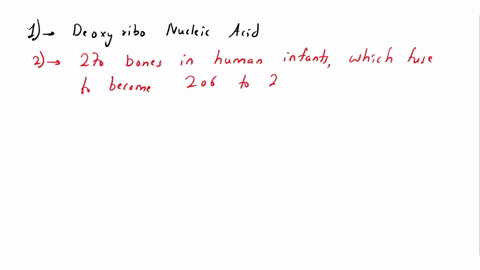 1)→ Deoxy ribo Nucleic Acid
2)→ 270 bones in human infants, which fuse
to become 206 to 2